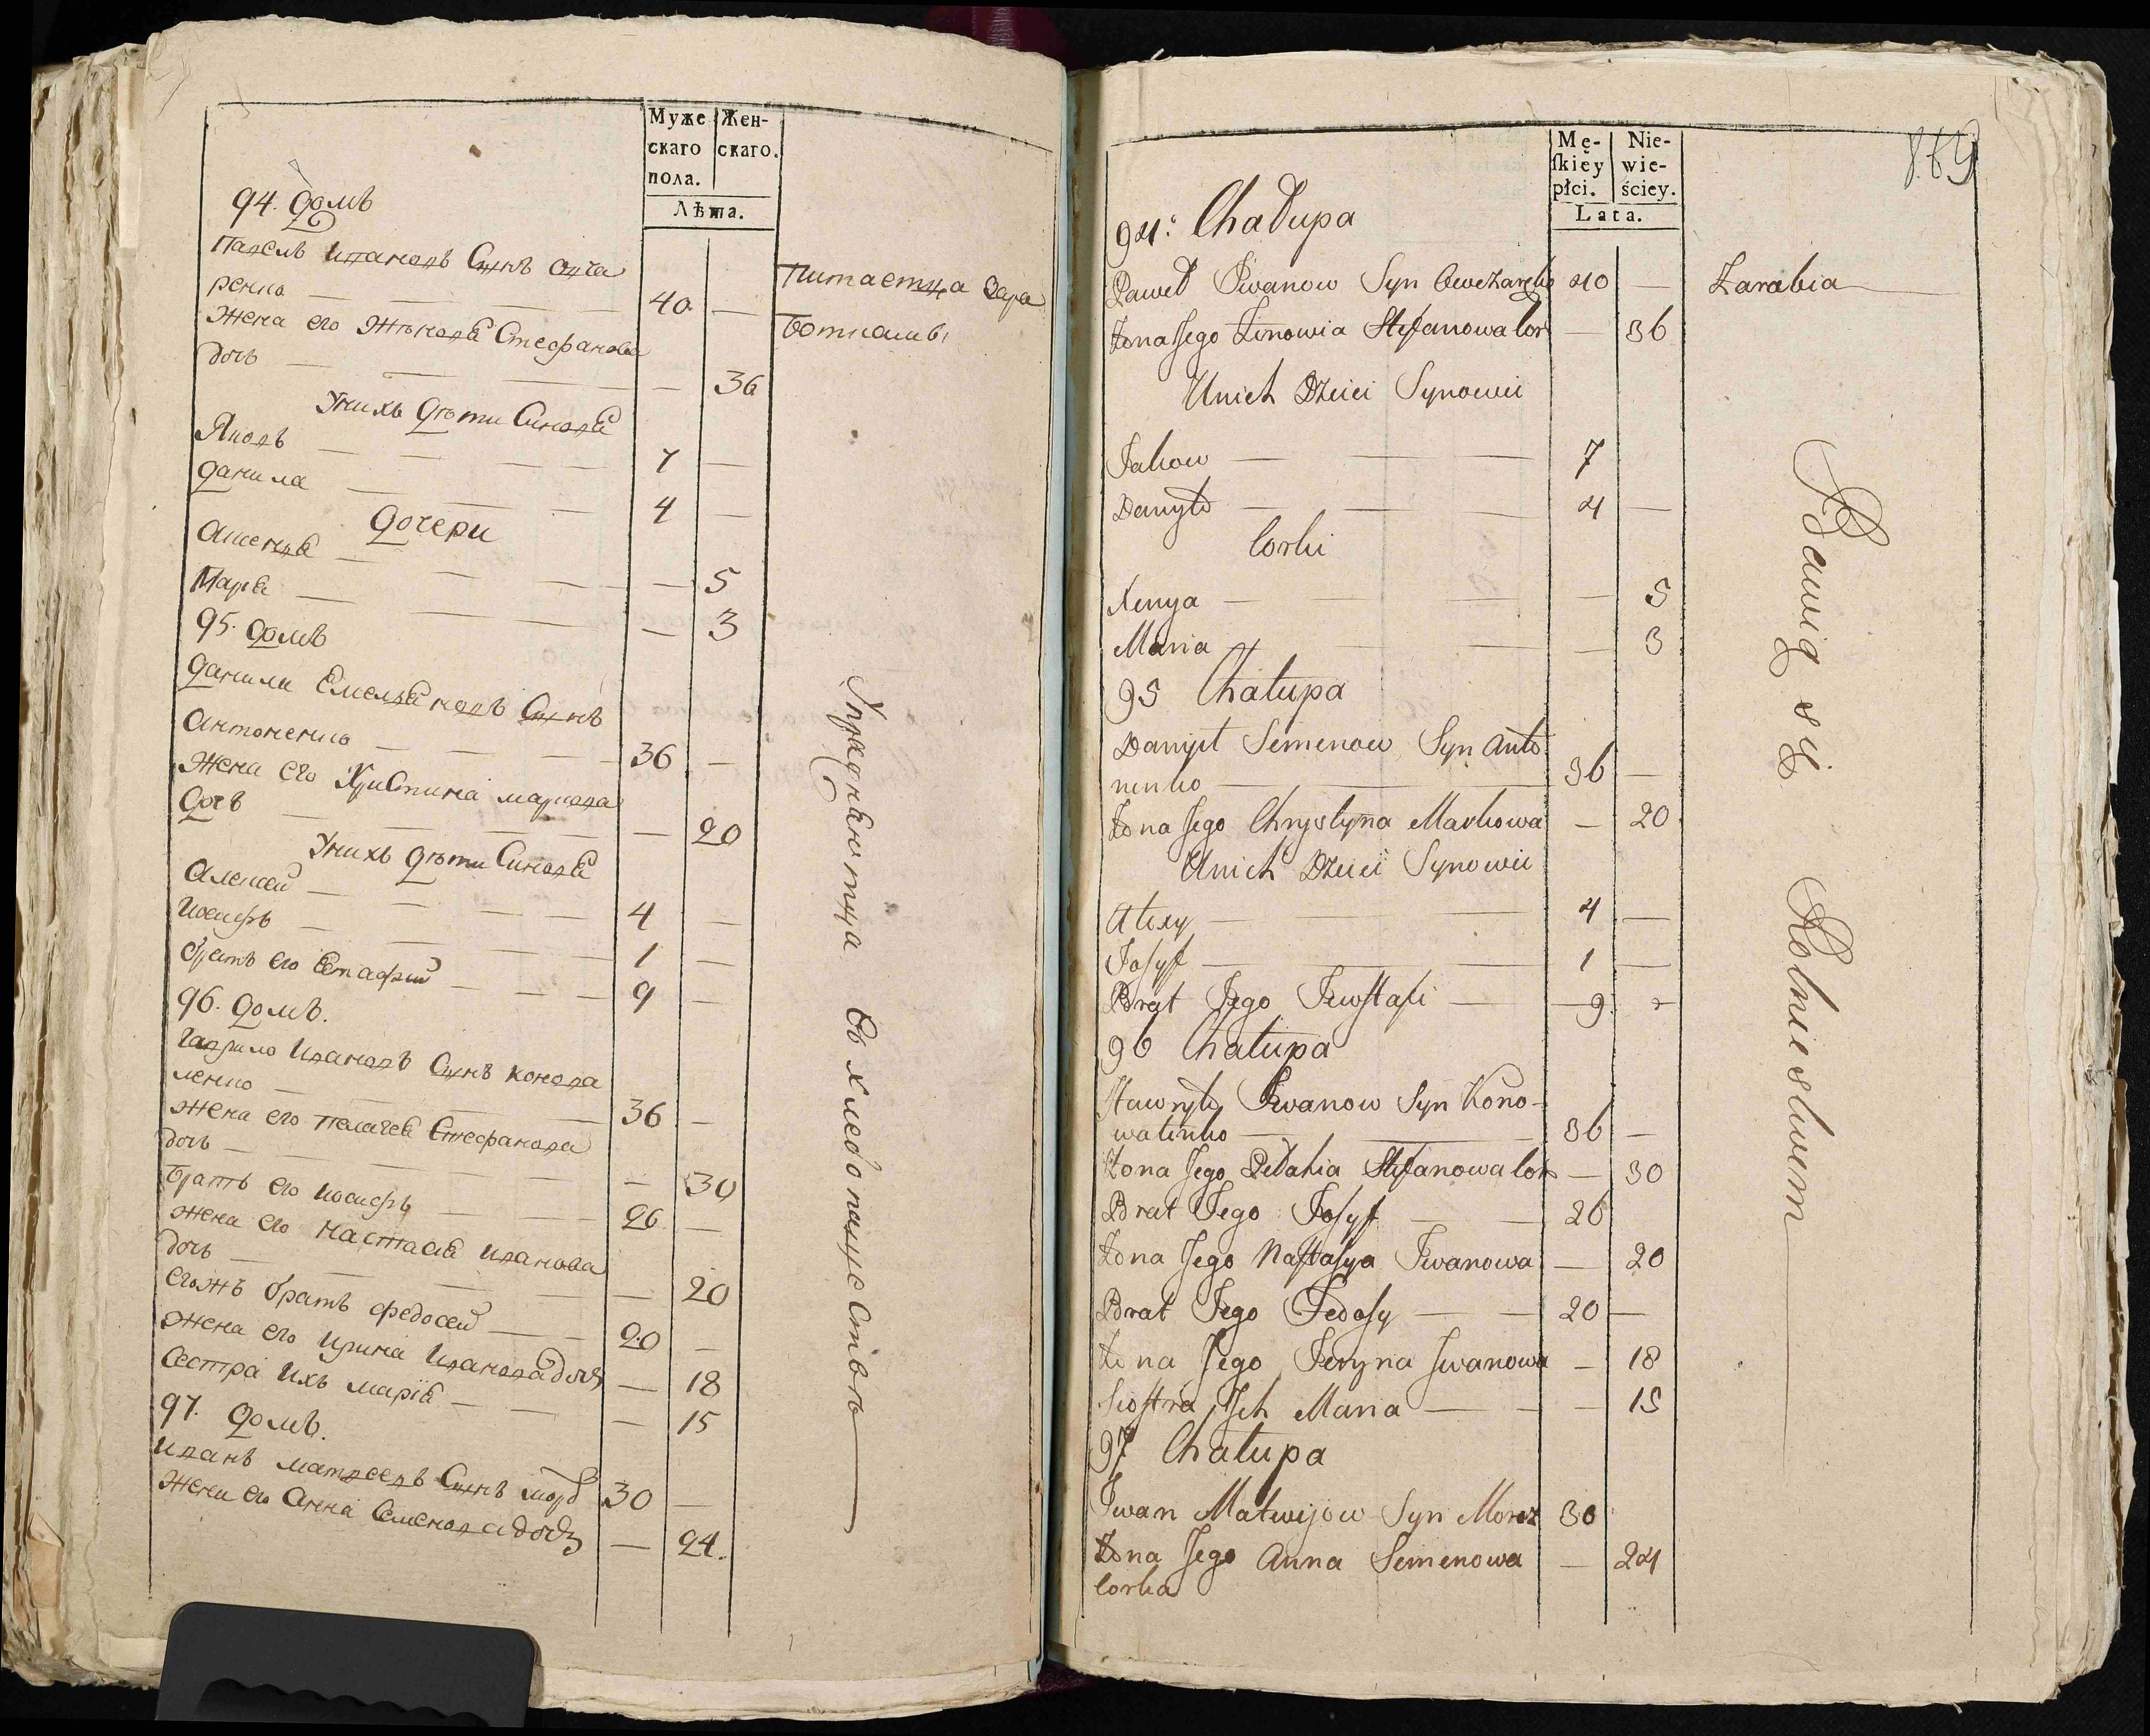 Муже
скаго
пола.
Жен-
скаго.
Лѣта.
94. домъ
Павелъ Ивановъ Сынъ Овча
ренко — 40 —
Питаетца Зара
ботками
жена его Зѣновия Стефанова
дочь — — 36
Унихъ дѣти Синовя
Яковъ — 7 —
данила — 4 —
дочери
Аксенѣя — — 5
Марѣя — — 3
95. домъ
данила Емельяновъ Сынъ
Антоненко — 36 —
жена его Христина маркова
дочь — — 20
Унихъ дѣти Синовя
Алексей — 4 —
Иосифъ — 1 —
братъ его Естафий — 9 —
96. домъ.
Гаврило Ивановъ Сынъ конова
ленко — 36 —
жена его пелагея Стефанова
дочь — — 30
братъ его иосифъ — 26 —
жена его Настасия Иванова
дочь — — 20
егожъ братъ федосей — 20 —
жена его ирина Иванова дочь — 18
Сестра ихъ мария — — 15
97. домъ.
Иванъ матвеевъ Сынъ 30 —
жена его Анна Семенова дочь — 24.
Упражняютца въ хлебопашествѣ
Mę-
ſkiéy
płci.
Nie-
wie-
ściey.
Lata.
869
94: Chałupa
Paweł Iwanow Syn Owczarenko 40 — Zarabia
Żona Jego Zinowia Stefanowa Cor — 36
Unich Dzieci Synowii
Jakow — 7
Danyło — 4 —
Corki
Xenya — — 5
Maria — — 3
95 Chałupa
Danyło Semenow Syn Anto
nenko — 36 —
Żona Jego Chrystyna Markowa — 20
Unich Dzieci Synowii
Alexy — 4 —
Josyf — 1 —
Brat Jego Jewstafi — 9 —
96 Chałupa
Hawryło Iwanow Syn Kono-
walenko — 36 —
Żona Jego Pełahia Stefanowa Cor — 30
Brat Jego Josyf — 26
Żona Jego Nastasya Iwanowa — 20
Brat Jego Fedosy — 20 —
Żona Jego Iryna Iwanowa — 18
Siostra Ich Maria — — 15
97 Chałupa
Iwan Matwijow Syn Moroz 30
Żona Jego Anna Semenowa — 24
Corka
Bawią się Rolnieslwem